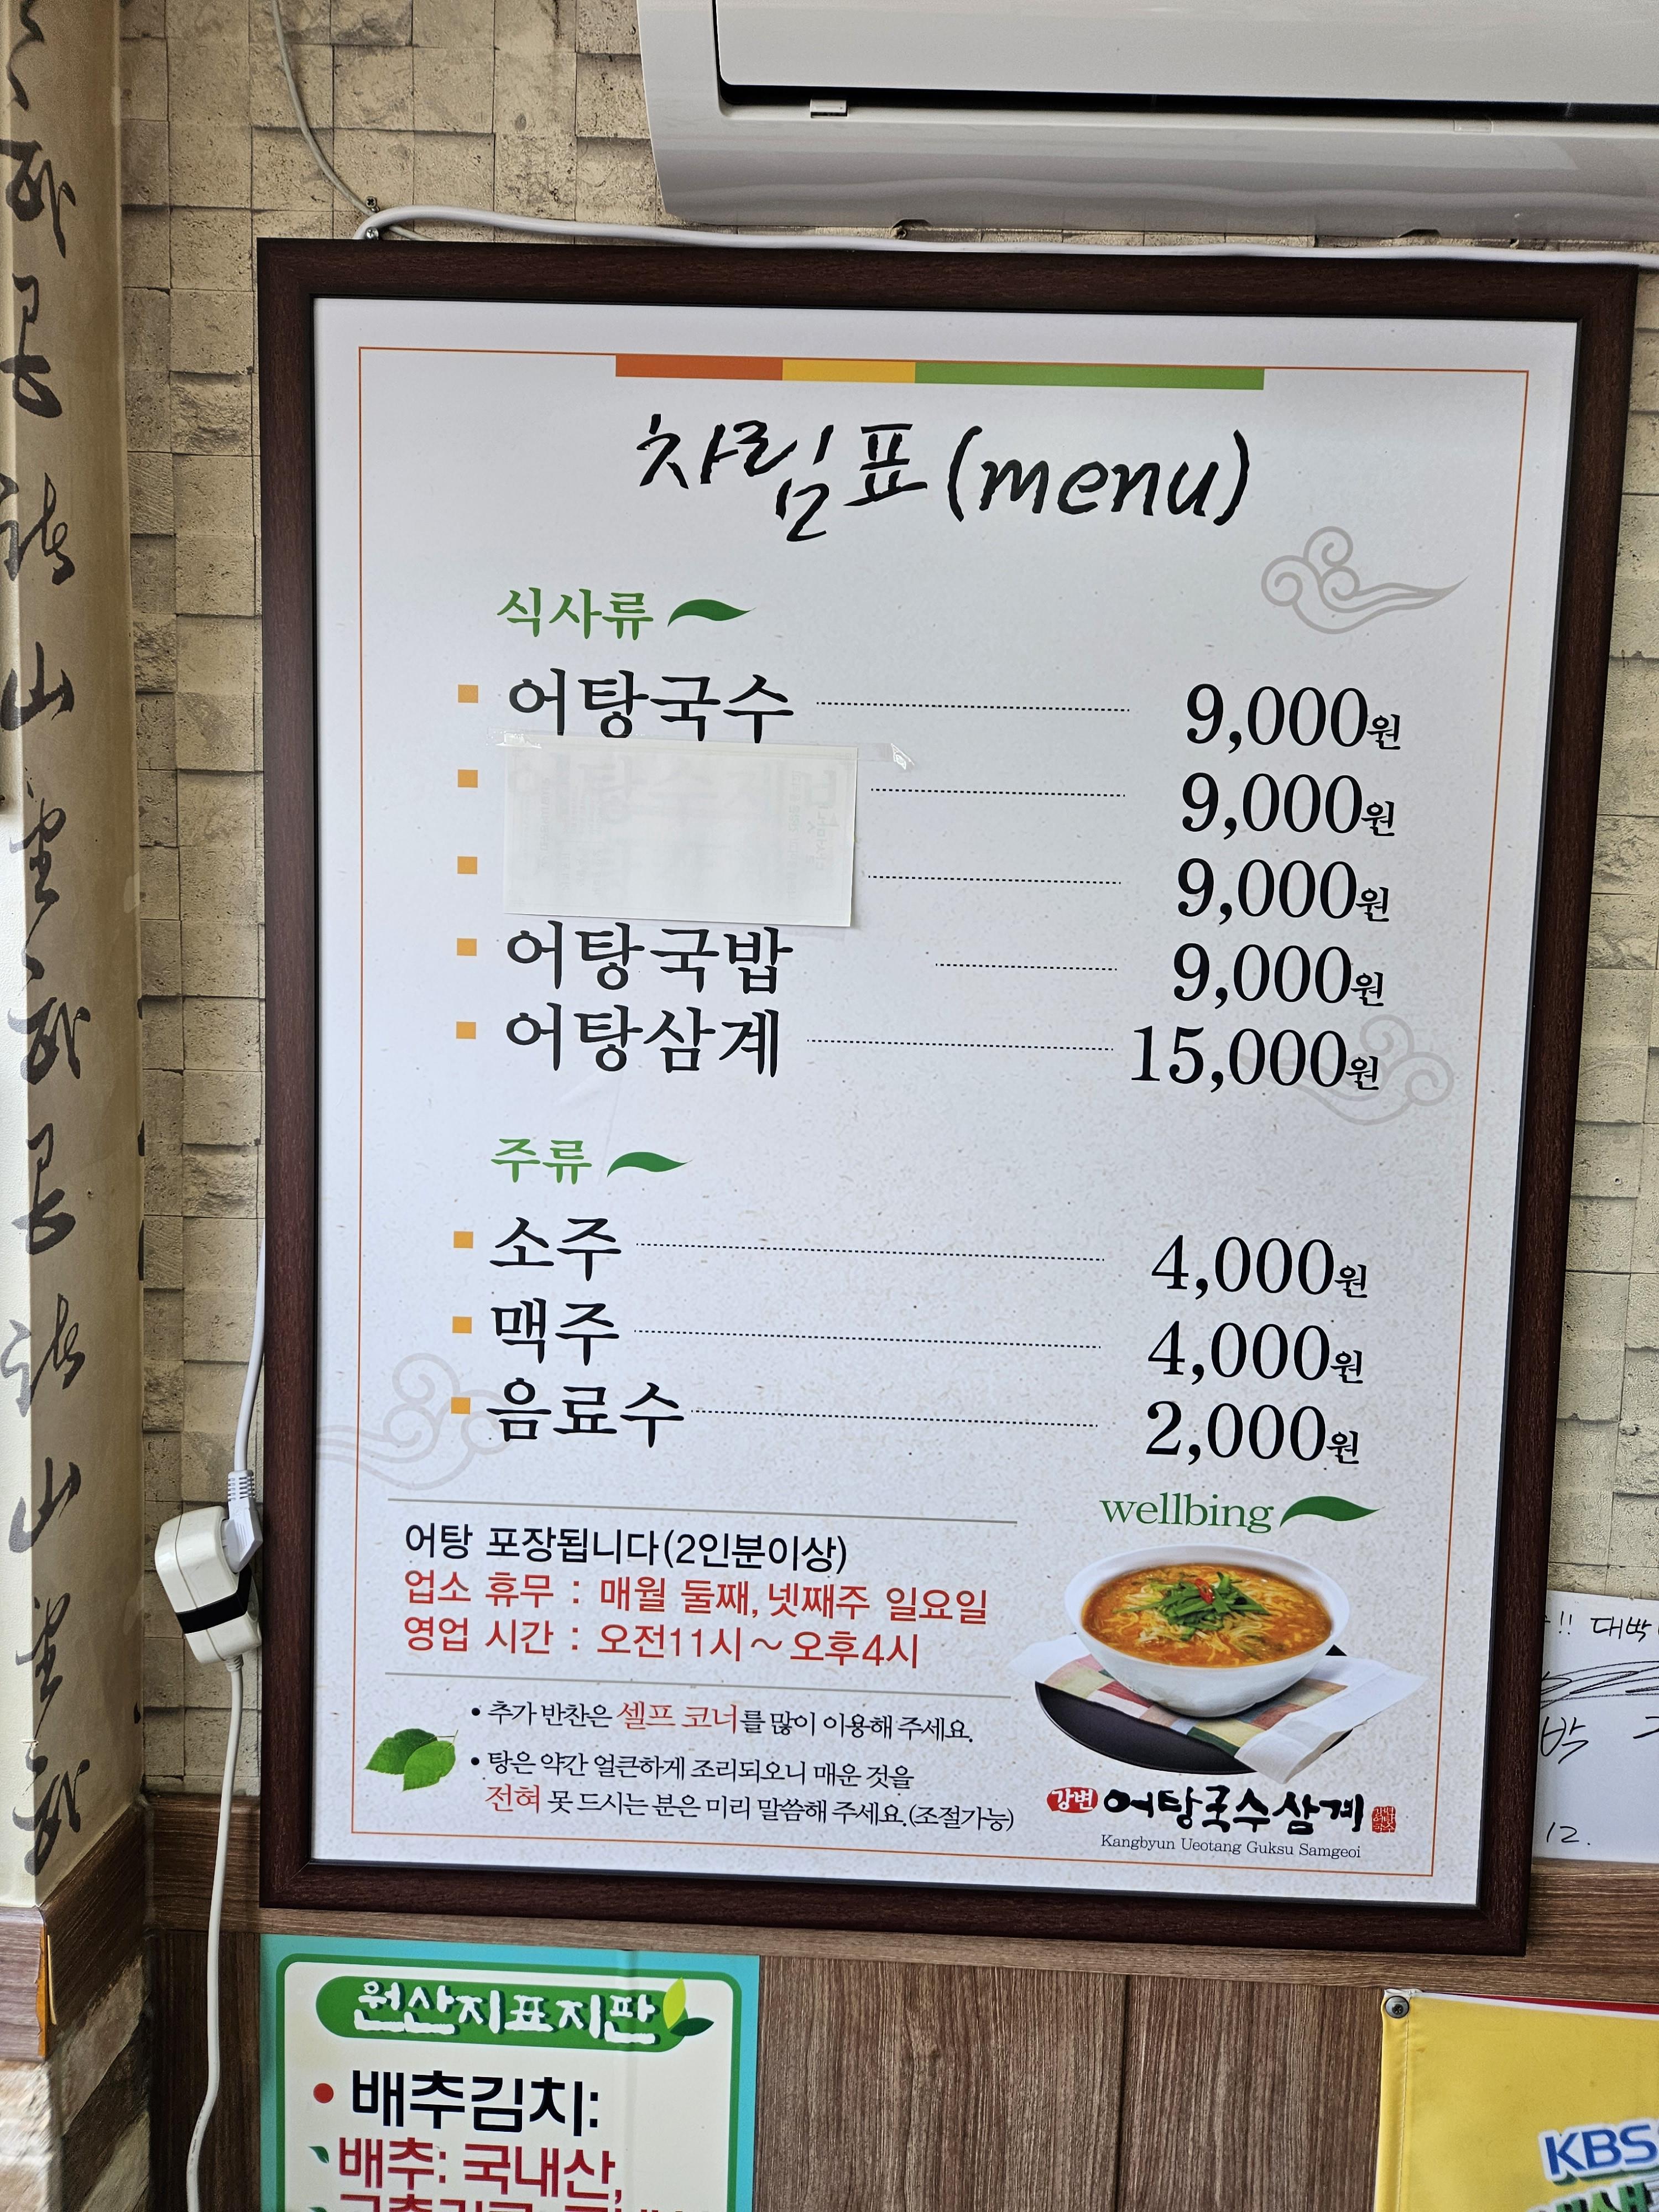 차림표(menu)
식사류
어탕국수 9,000원
9,000원
9,000원
어탕국밥 9,000원
어탕삼계 15,000원
주류
소주 4,000원
맥주 4,000원
음료수 2,000원
wellbing
어탕 포장됩니다(2인분이상)
업소 휴무 : 매월 둘째, 넷째주 일요일
영업 시간 : 오전11시~오후4시
• 추가 반찬은 셀프 코너를 많이 이용해 주세요.
• 탕은 약간 얼큰하게 조리되오니 매운 것을
전혀 못 드시는 분은 미리 말씀해 주세요.(조절가능)
강변 어탕국수삼계
Kangbyun Ueotang Guksu Samgeoi
!! 대박
박
12.
원산지표지판
• 배추김치:
배추: 국내산,
KBS